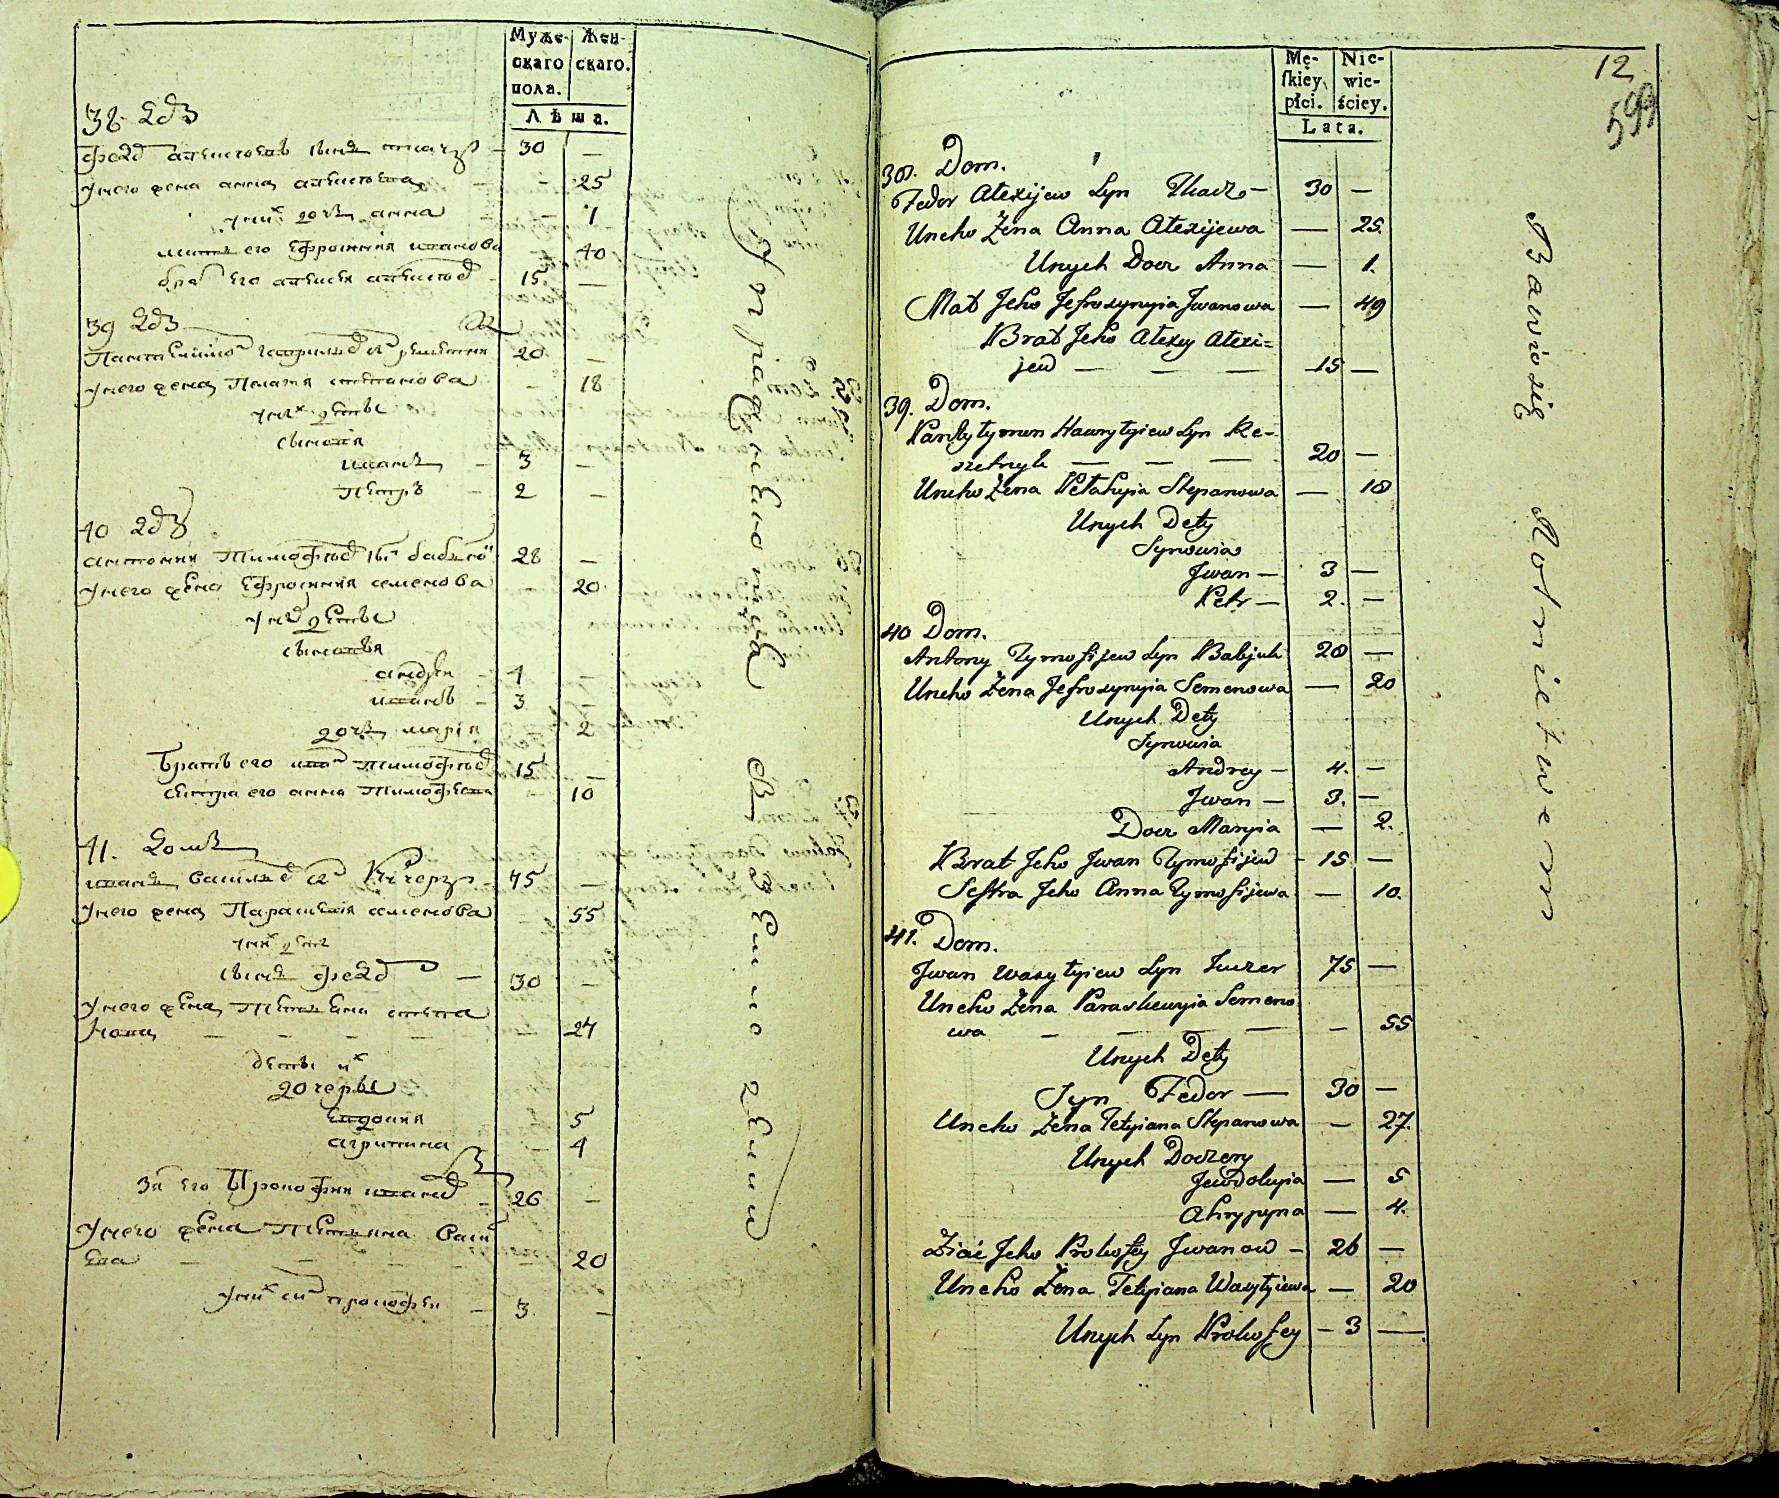 Муже-
скаго
пола.
Жен-
скаго.
Лѣта.
38
30 —
у него жена анна алексѣева — 25
у них дочь анна — 1
мать его Ефросиния иванова — 40
брат его алексѣй 15 —
39
20 —
у него жена Пелагия степанова — 18
у них дети
сыновья
иванъ — 3 —
петръ — 2 —
40
антоний Тимофѣев 28 —
у него жена Ефросиния семенова — 20
у них дети
сыновья
андрей — 4 —
иванъ — 3 —
дочь мария 2
братъ его иван тимофѣев 15 —
сестра его анна тимофеева — 10
41. домъ
иванъ василев 75 —
у него жена Параскевия семенова 55
у них дети
сынъ федор — 30 —
у него жена Татьяна степа
нова — — — — 27
дети их
дочеры
евдокия 5
агрипина — 4
зять его Прокофий иванов — 26 —
у него жена Татьяна васи
20
у них сын прокофей — 3 —
Упражнение
в земледелии
Mę-
skiey
płci.
Nie-
wie-
ściey.
Lata.
12
599
38. Dom.
Fedor Alexijew Syn Tkacz — 30 —
Uneho Żena Anna Alexijewa — 25.
Unych Docz Anna — 1.
Mat Jeho Jefrosynyja Jwanowa — 49
Brat Jeho Alexey Alexi=
jew — — — 15 —
39. Dom.
Pantylymon Hawryłyjew Syn Re-
szetnyk — — — 20 —
Uneho Żena Pełahyja Stepanowa — 18
Unych Dety
Synowia
Jwan — 3 —
Petr — 2. —
40 Dom.
Antony Tymofijew Syn Babjuk 28 —
Uneho Żena Jefrosynyja Semenowa — 20
Unych Dety
Synowia
Andrey — 4. —
Jwan — 3. —
Docz Maryia — 2.
Brat Jeho Jwan Tymofijew — 15 —
Sestra Jeho Anna Tymofijewa — 10.
41. Dom.
Jwan Wasyłyjew Syn 75 —
Uneho Żena Paraskewyja Semeno
wa — — — — 55
Unych Dety
Syn Fedor — 30 —
Uneho Żena Tetyjana Stepanowa — 27.
Unych Doczery
Jewdokyja — 5
Ahrypyna — 4.
Ziać Jeho Prokofey Jwanow — 26 —
Uneho Żena Tetyjana Wasyłyjewa — 20
Unych Syn Prokofey — 3 —
Bawią się Rolnictwem